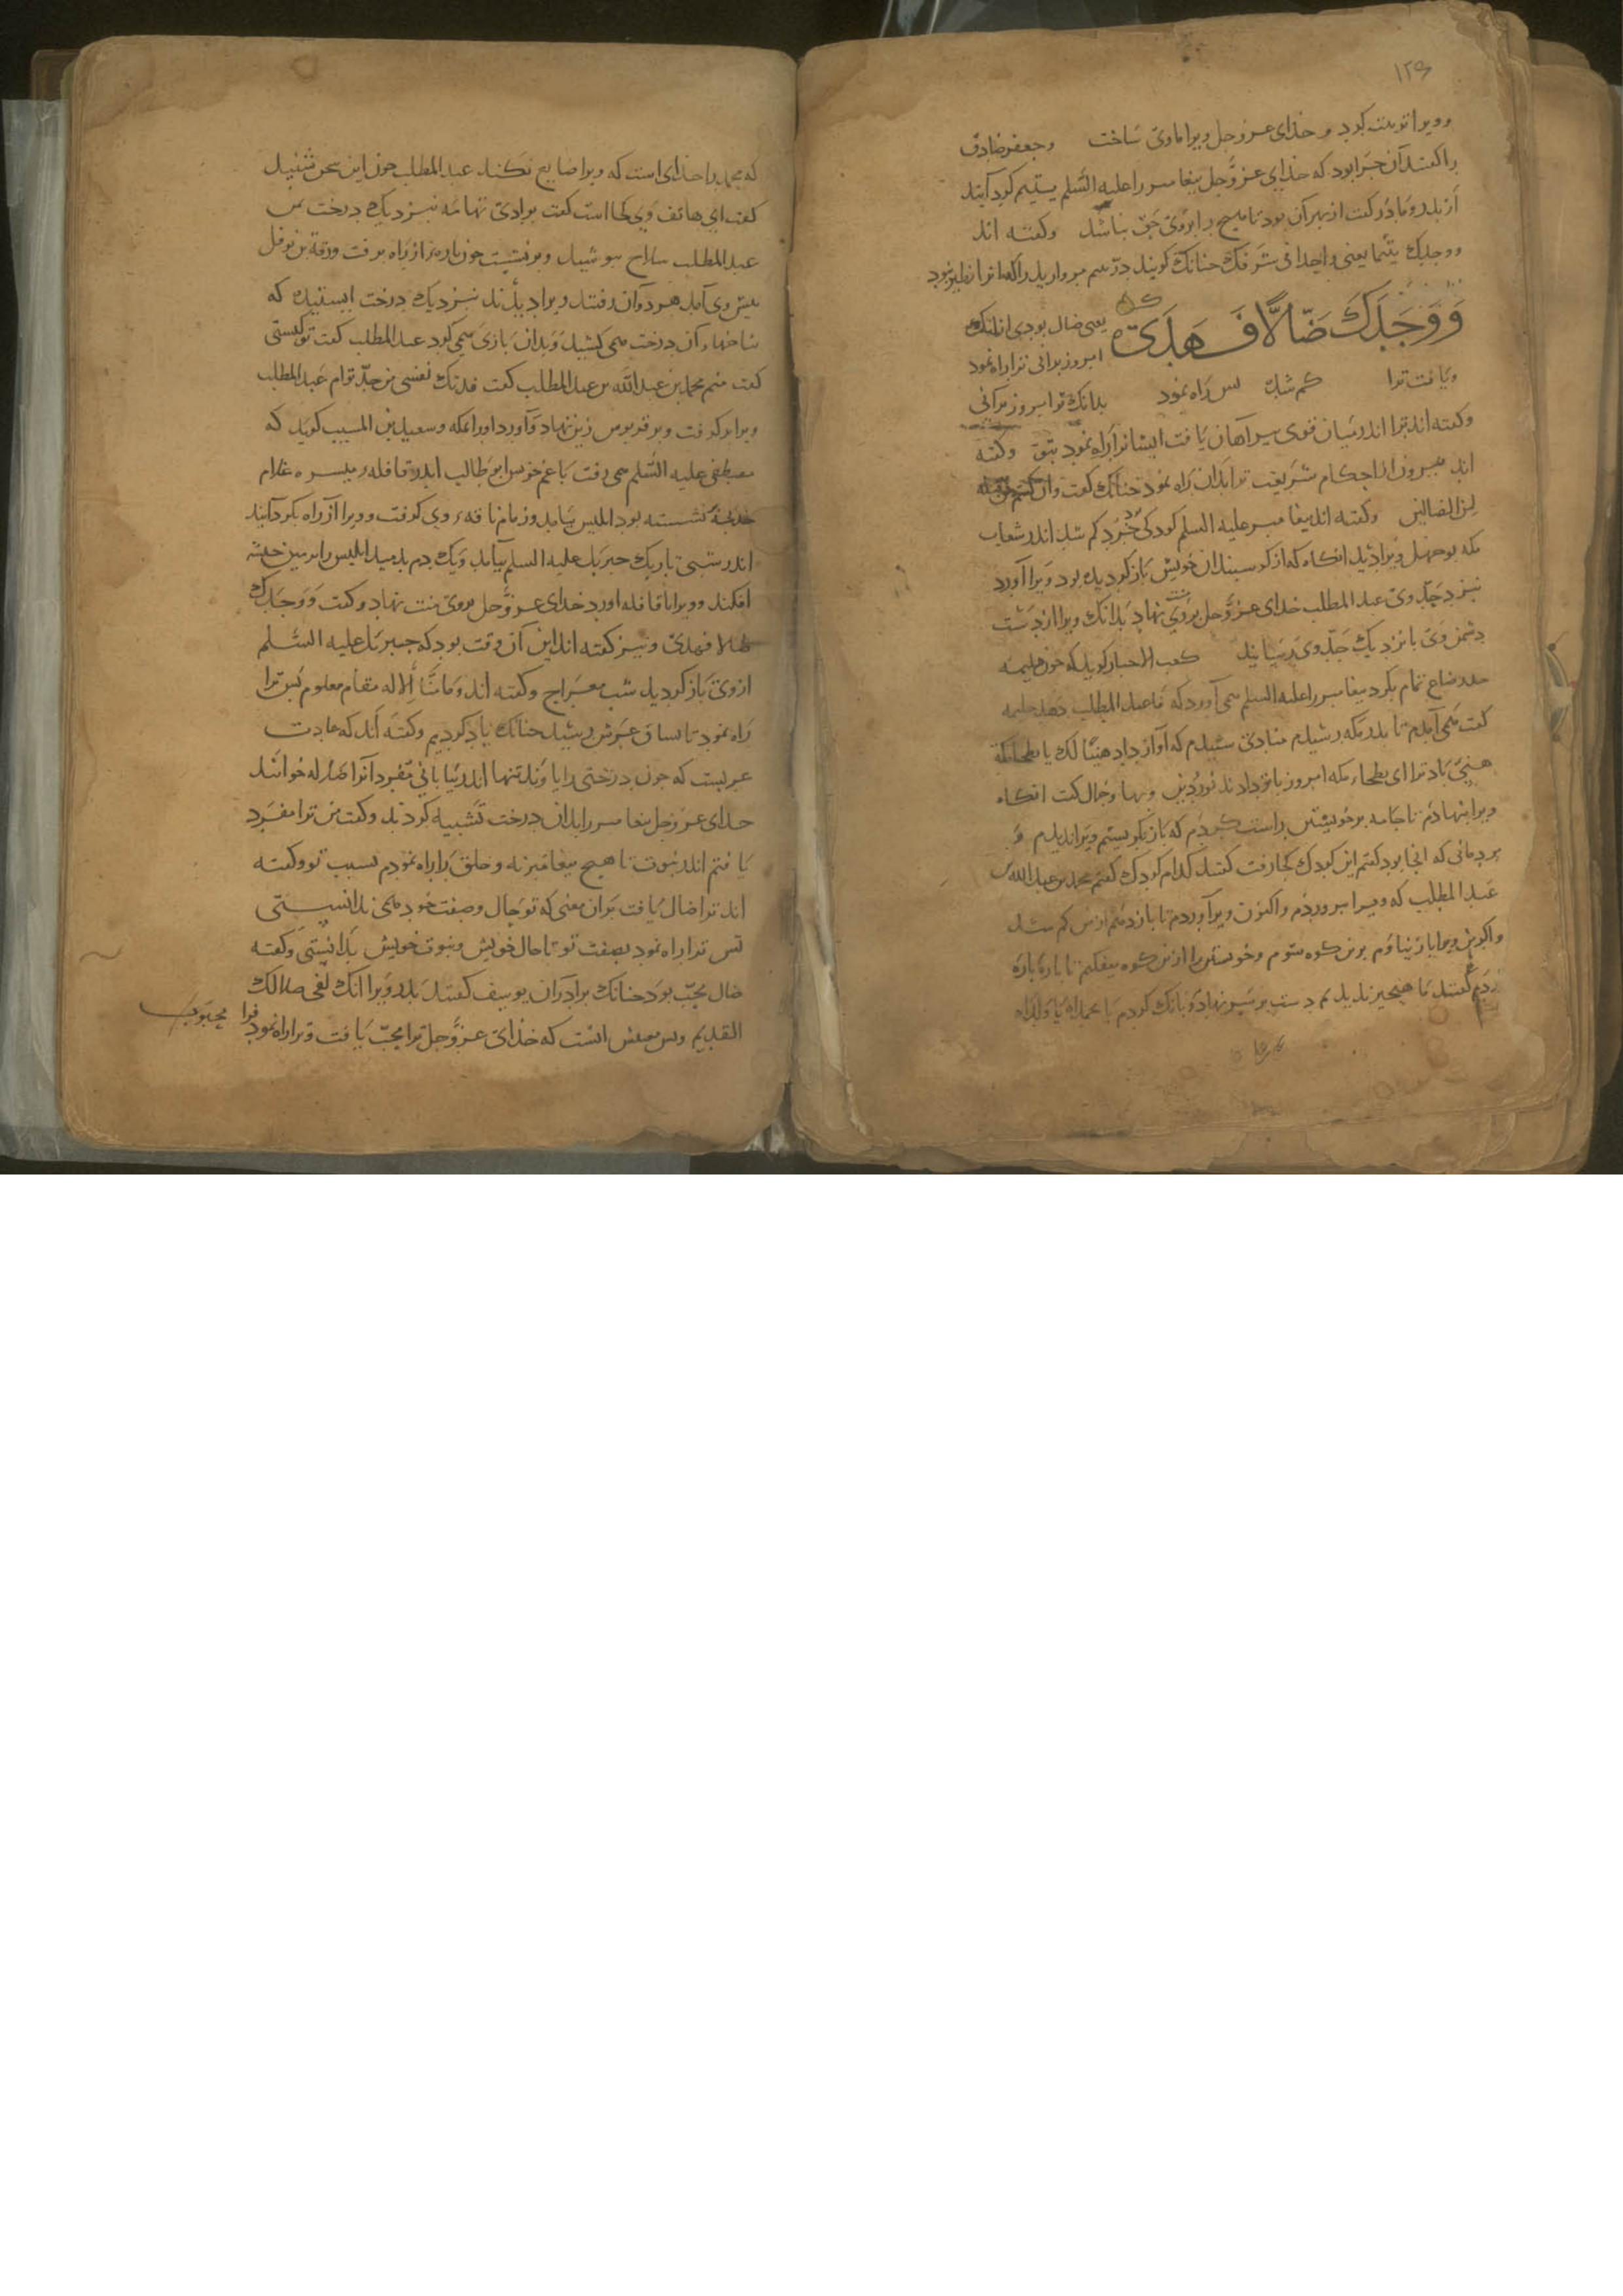 ۱۲۶
وویرا تربیت کرد و خذای عزوجل ویرا ماوی ساخت وجعفر صادق
را گفتند آن چرا بود که خذای عزوجل پیغامبر را علیه السلم یتیم کردآنید
از پدر ومادر گفت از بهر آن بود تا هیچ را بروی حق نباشد وگفته اند
ووجدک یتیما یعنی واحدا فی شرفک چنانک گویند دریتیم مرواریدی را که آنرا نظیر نبود
وَوَجَدَكَ ضَالًّا فَهَدَىٰ یعنی ضال بودی از انک
امروز برانی ترا راه نمود
ویافت ترا کم شده بس راه نمود بدانک تو امروز برآنی
وگفته اند ترا اندر میان قومی بیراهان یافت ایشانرا راه نمود بتو وگفته
اند بیرون از احکام شریعت ترا بذان راه نمود چنانک گفت وان کنتم من قبله
لمن الضالین وگفته اند پیغامبر علیه السلم کودکی خرد بود کم شد اندر شعاب
مکه بوجهل ویرا دید انگاه که از گوسبندان خویش باز گردیده بود ویرا آورد
نزد جد وی عبدالمطلب خدای عزوجل بروی منت نهاد بدانک ویرا از دست
دشمن وی بانزدیک جد وی رسانید کعب الاحبار گوید که چون حلیمه
حد رضاع تمام بکرد پیغامبر را علیه السلم می آورد که تا عبدالمطلب دهد حلیمه
گفت همی آمدم تا بدر مکه رسیدم منادی شنیدم که آواز داد هنیئا لک یا بطحا مکة
هنیئ باد ترا ای بطحاء مکه امروز باتو دادند نور ودین وبها وجمال گفت انگاه
ویرا بنهادم تا جامه بر خویشتن راست کردم که باز نگریستم ویرا ندیدم و
مردمانی که انجا بود گفتم این کودک کجا رفت گفتند کدام کودک گفتم محمد بن عبدالله بن
عبد المطلب که ویرا بپروردم واکنون ویرا آوردم تا بازدهم از من کم شد
واگر من ویرا باز نیاوم برین کوه شوم وخویشتن را ازین کوه بیفکنم تا پاره پاره
گردم گفتند ما هیچیز ندیدیم دست بر سر نهادم وبانک کردم یا محمداه یا ولداه
که محمد را خدای است که ویرا ضایع نکند عبدالمطلب چون این سخن شنید
گفت ای هاتف وی کجا است گفت بوادی تهامه نزدیک درخت یمن
عبدالمطلب سلاح بپوشید وبرنشست چون پاره از راه برفت ورقة بن نوفل
پیش وی آمد هر دوان رفتند ویرا دیدند نزدیک درخت ایستیده که
شاخهاء آن درخت همی کشید وبدان بازی همی کرد عبدالمطلب گفت تو کیستی
گفت منم محمد بن عبدالله بن عبدالمطلب گفت فدتک نفسی من جد توام عبدالمطلب
ویرا بر گرفت وبر قربوس زین نهاد وآورد اورا بمکه وسعید بن المسیب گوید که
مصطفی علیه السلم می رفت با عم خویش ابوطالب اندر قافلهء میسره غلام
خدیجه نشسته بود ابلیس بیامد وزمام ناقهء وی گرفت وویرا از راه بگردآنید
اندر شبی تاریک جبریل علیه السلم بیامد ویک دم بدمید ابلیس را بزمین حبشه
افکند وویرا باقافله اورد خدای عزوجل بروی منت نهاد وگفت ووجدک
ضالا فهدی ونیز گفته اند این آن وقت بود که جبریل علیه السلم
از وی باز گردید شب معراج وگفته اند ومامنا الا له مقام معلوم بس ترا
راه نمود تا بساق عرش رسید چنانک یاد کردیم وگفته اند که عادت
عربست که چون درختی را یاوند تنها اندر بیابانی مفرد آنرا ضاله خوانند
خدای عزوجل پیغامبر را بدان درخت تشبیه کردند وگفت من ترا مفرد
یافتم اندر نبوت با هیچ پیغامبر نه وخلق را راه نمودم بسبب تو وگفته
اند ترا ضال یافت بران معنی که تو حال وصفت خود همی ندانستی
بس ترا راه نمود بصفت تو تا حال خویش ونبوت خویش بدانستی وگفته
ضال محب بود چنانک برادران یوسف گفتند پدر ویرا انک لفی ضلالک
القدیم وبس معنیش انست که خذای عزوجل ترا محب یافت وترا راه نمود فرا محبوب